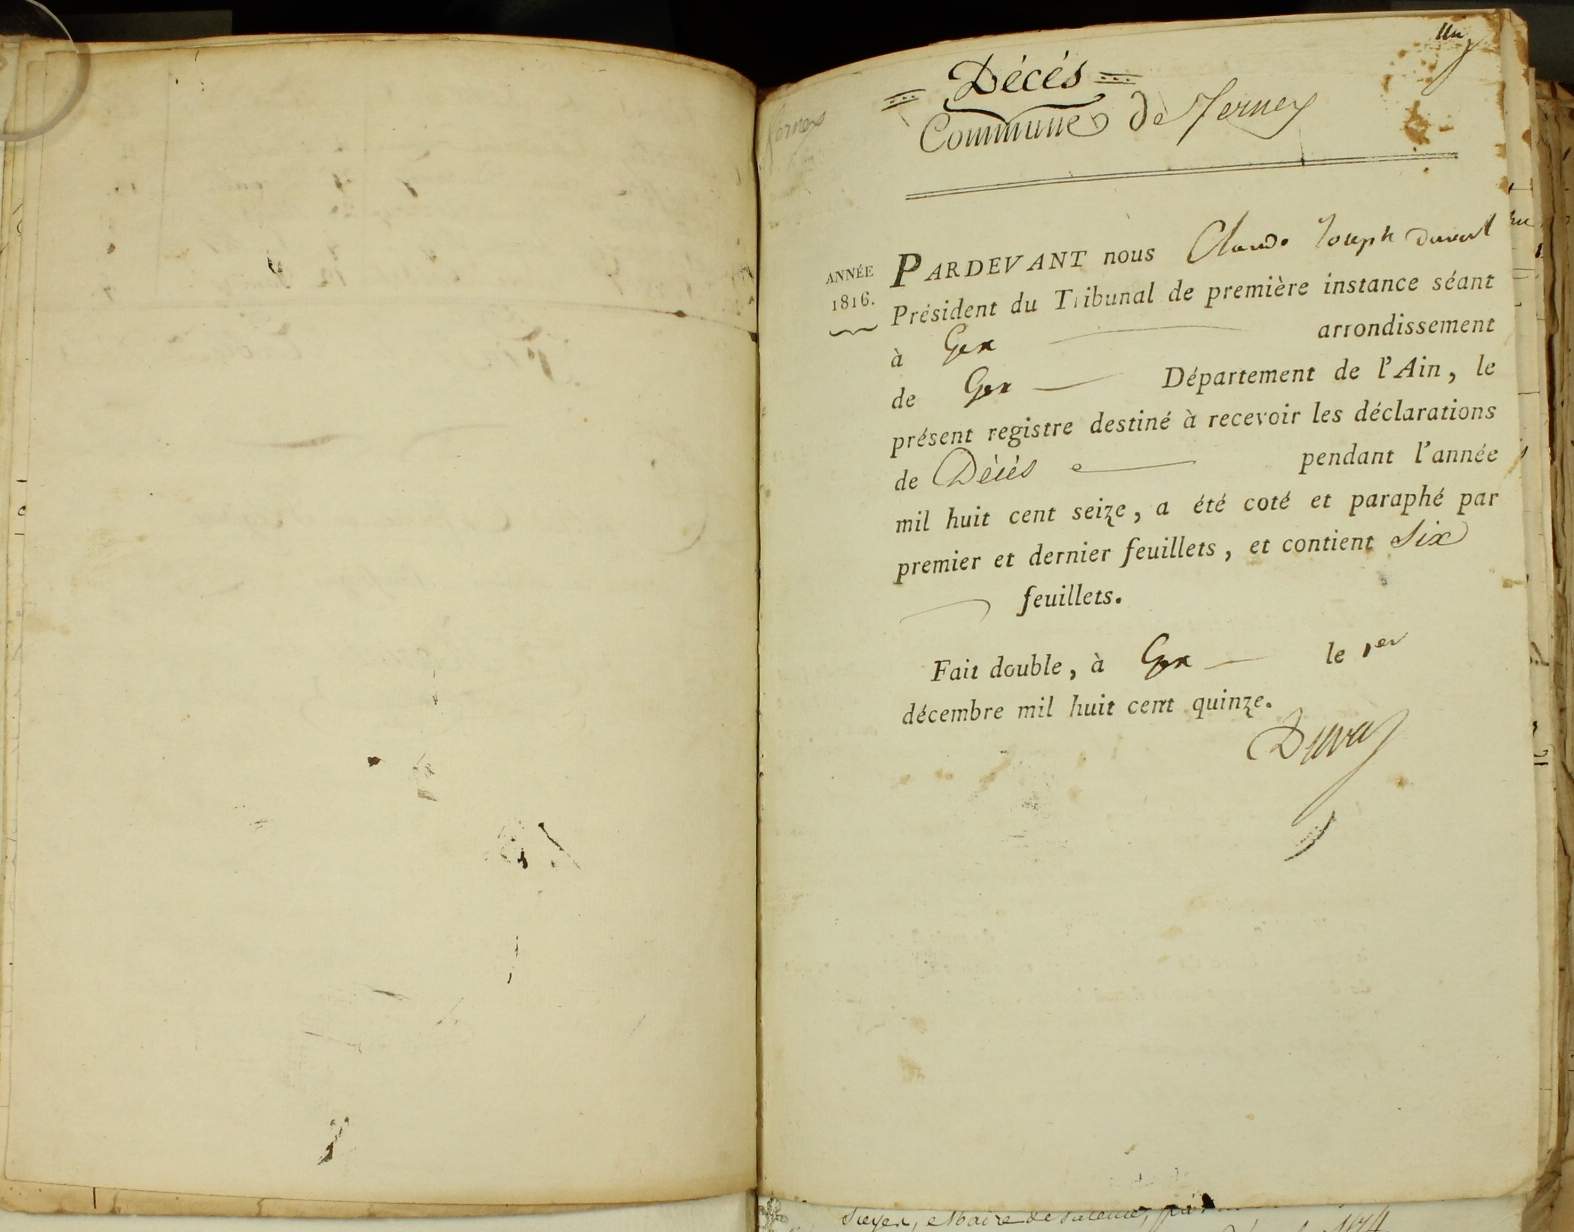 un
= Décés =
Commune de Ferney
Ferney
ANNÉE
1816.
PARDEVANT nous Claude Joseph Duval
Président du Tribunal de première instance séant
à Gex arrondissement
de Gex Département de l'Ain, le
présent registre destiné à recevoir les déclarations
de Décés pendant l'année
mil huit cent seize, a été coté et paraphé par
premier et dernier feuillets, et contient six
feuillets.
Fait double, à Gex le 1er
décembre mil huit cent quinze.
Duval